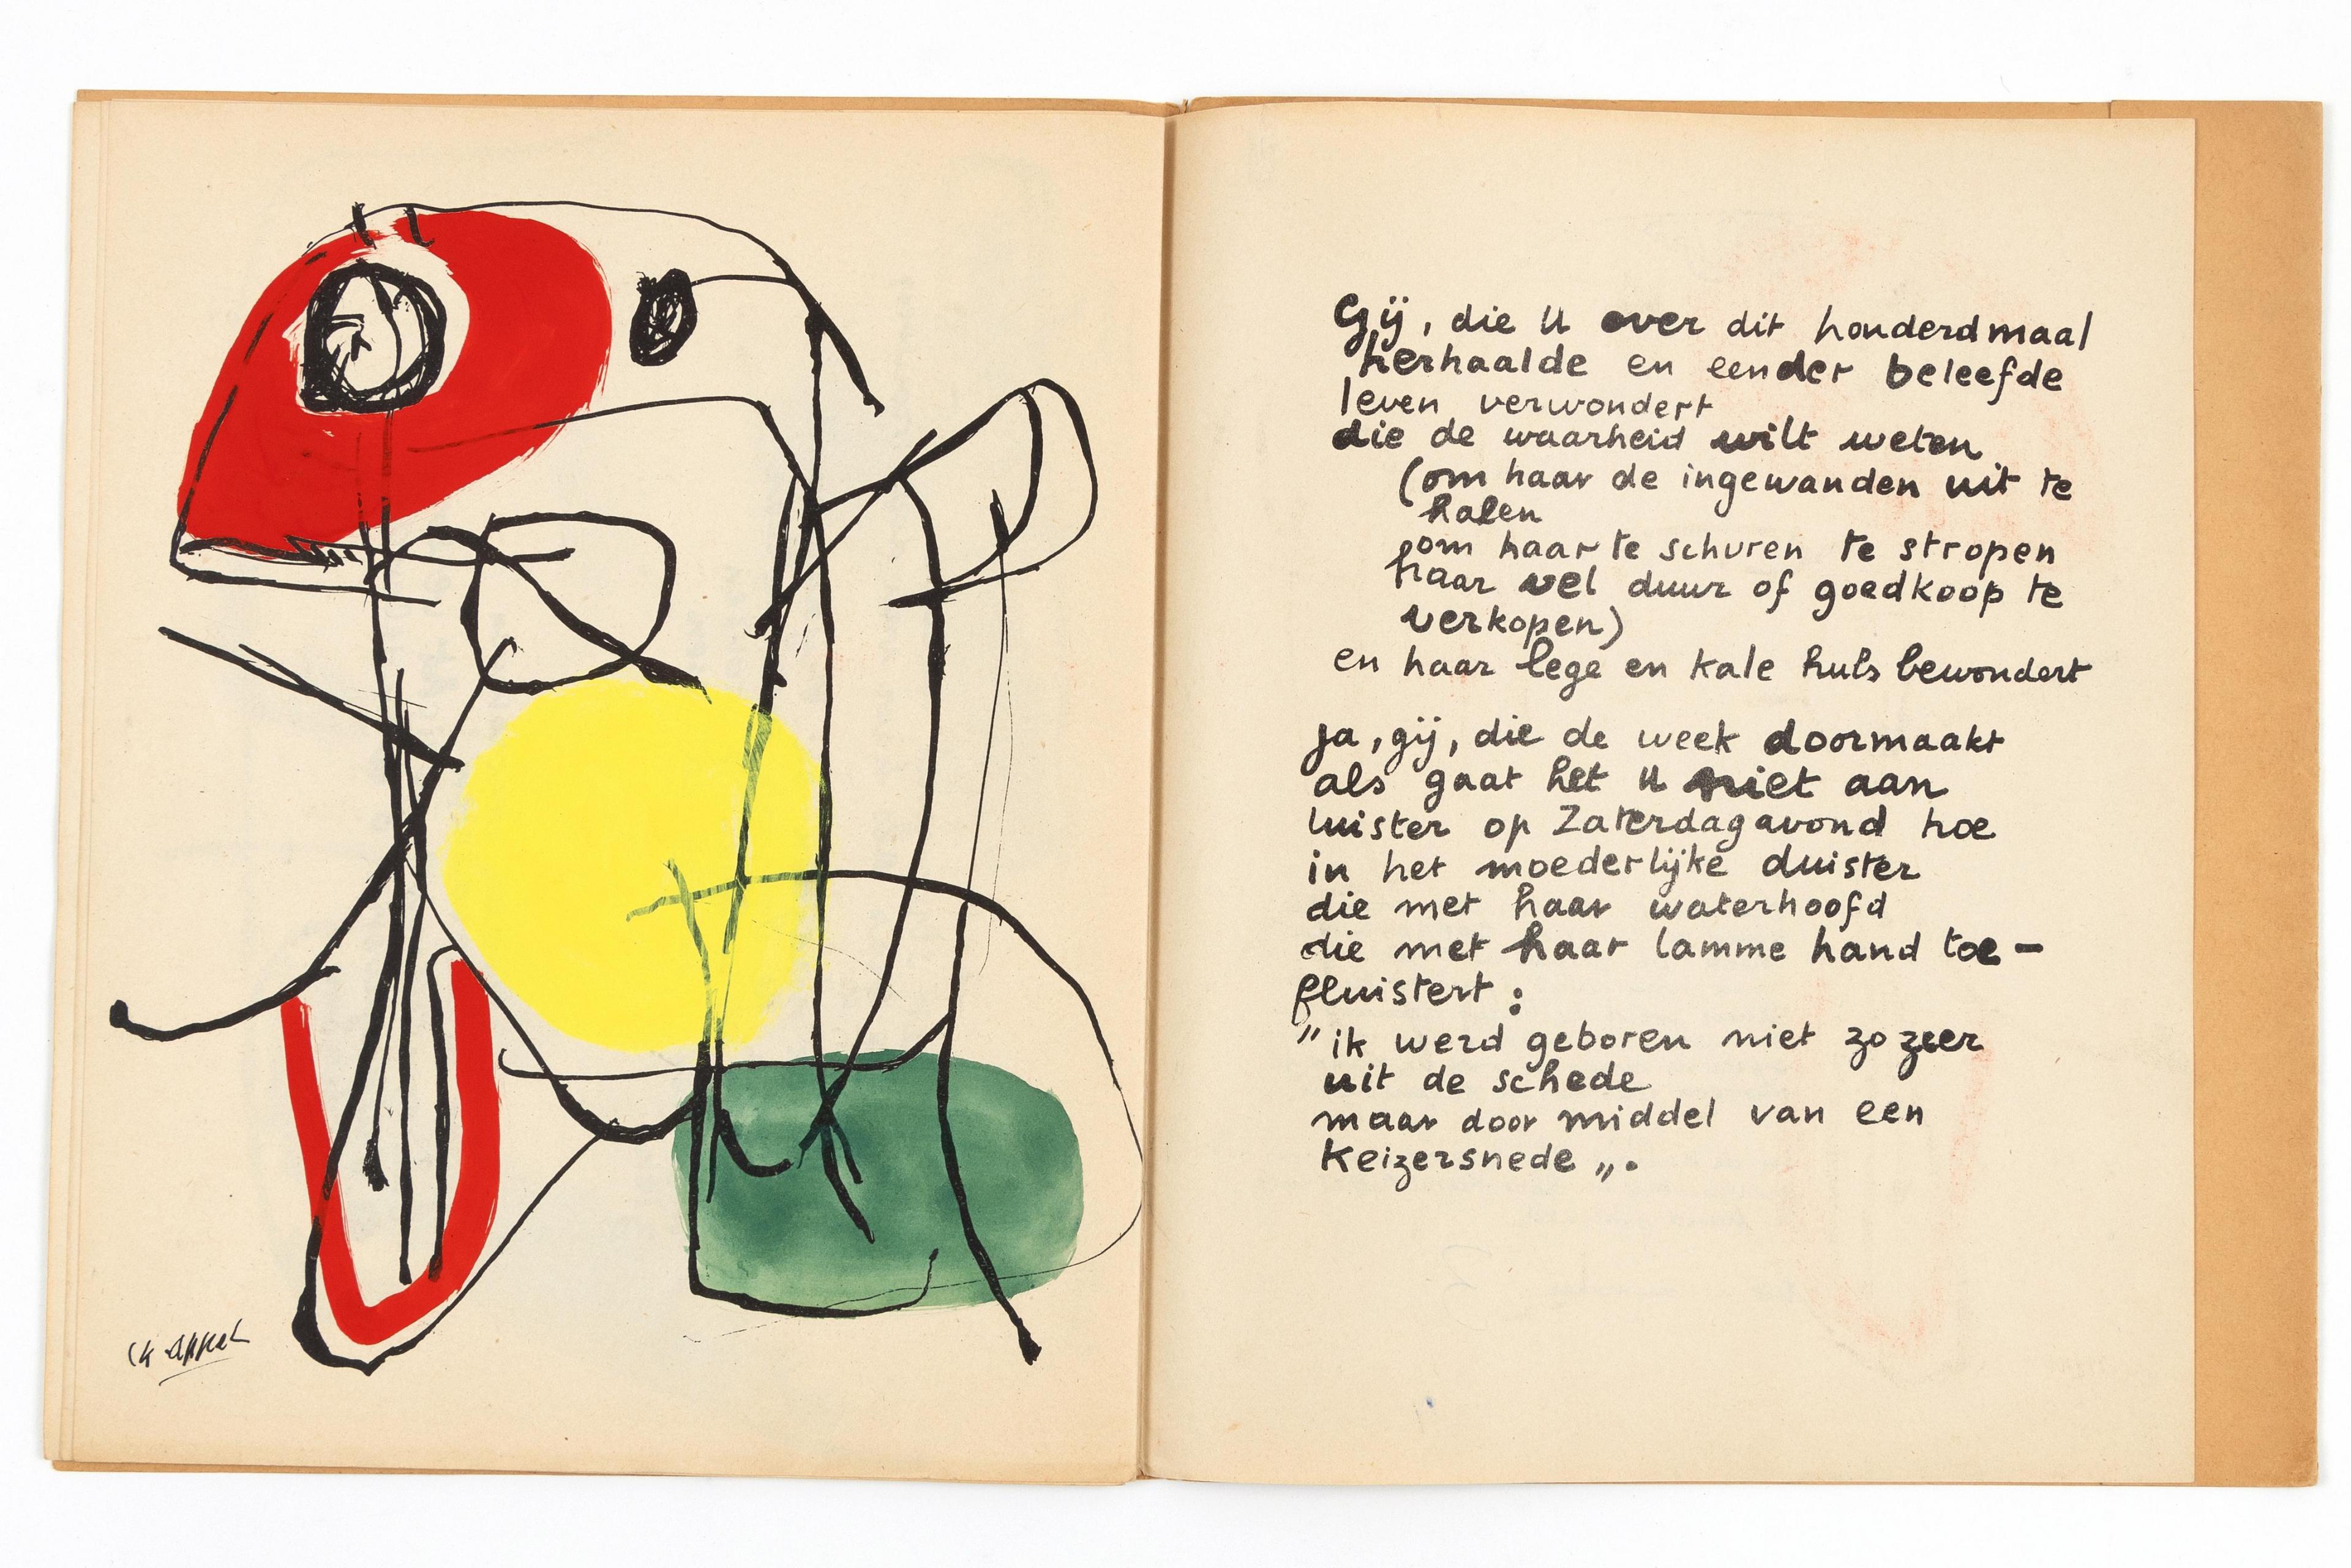 ck appel
Gij, die U over dit honderdmaal
herhaalde en eender beleefde
leven verwondert
die de waarheid wilt weten
(om haar de ingewanden uit te
halen
om haar te schuren te stropen
haar vel duur of goedkoop te
verkopen)
en haar lege en kale huls bewondert
ja, gij, die de week doormaakt
als gaat het U niet aan
luister op Zaterdagavond hoe
in het moederlijke duister
die met haar waterhoofd
die met haar lamme hand toe-
fluistert :
"ik werd geboren niet zo zeer
uit de schede
maar door middel van een
keizersnede„.